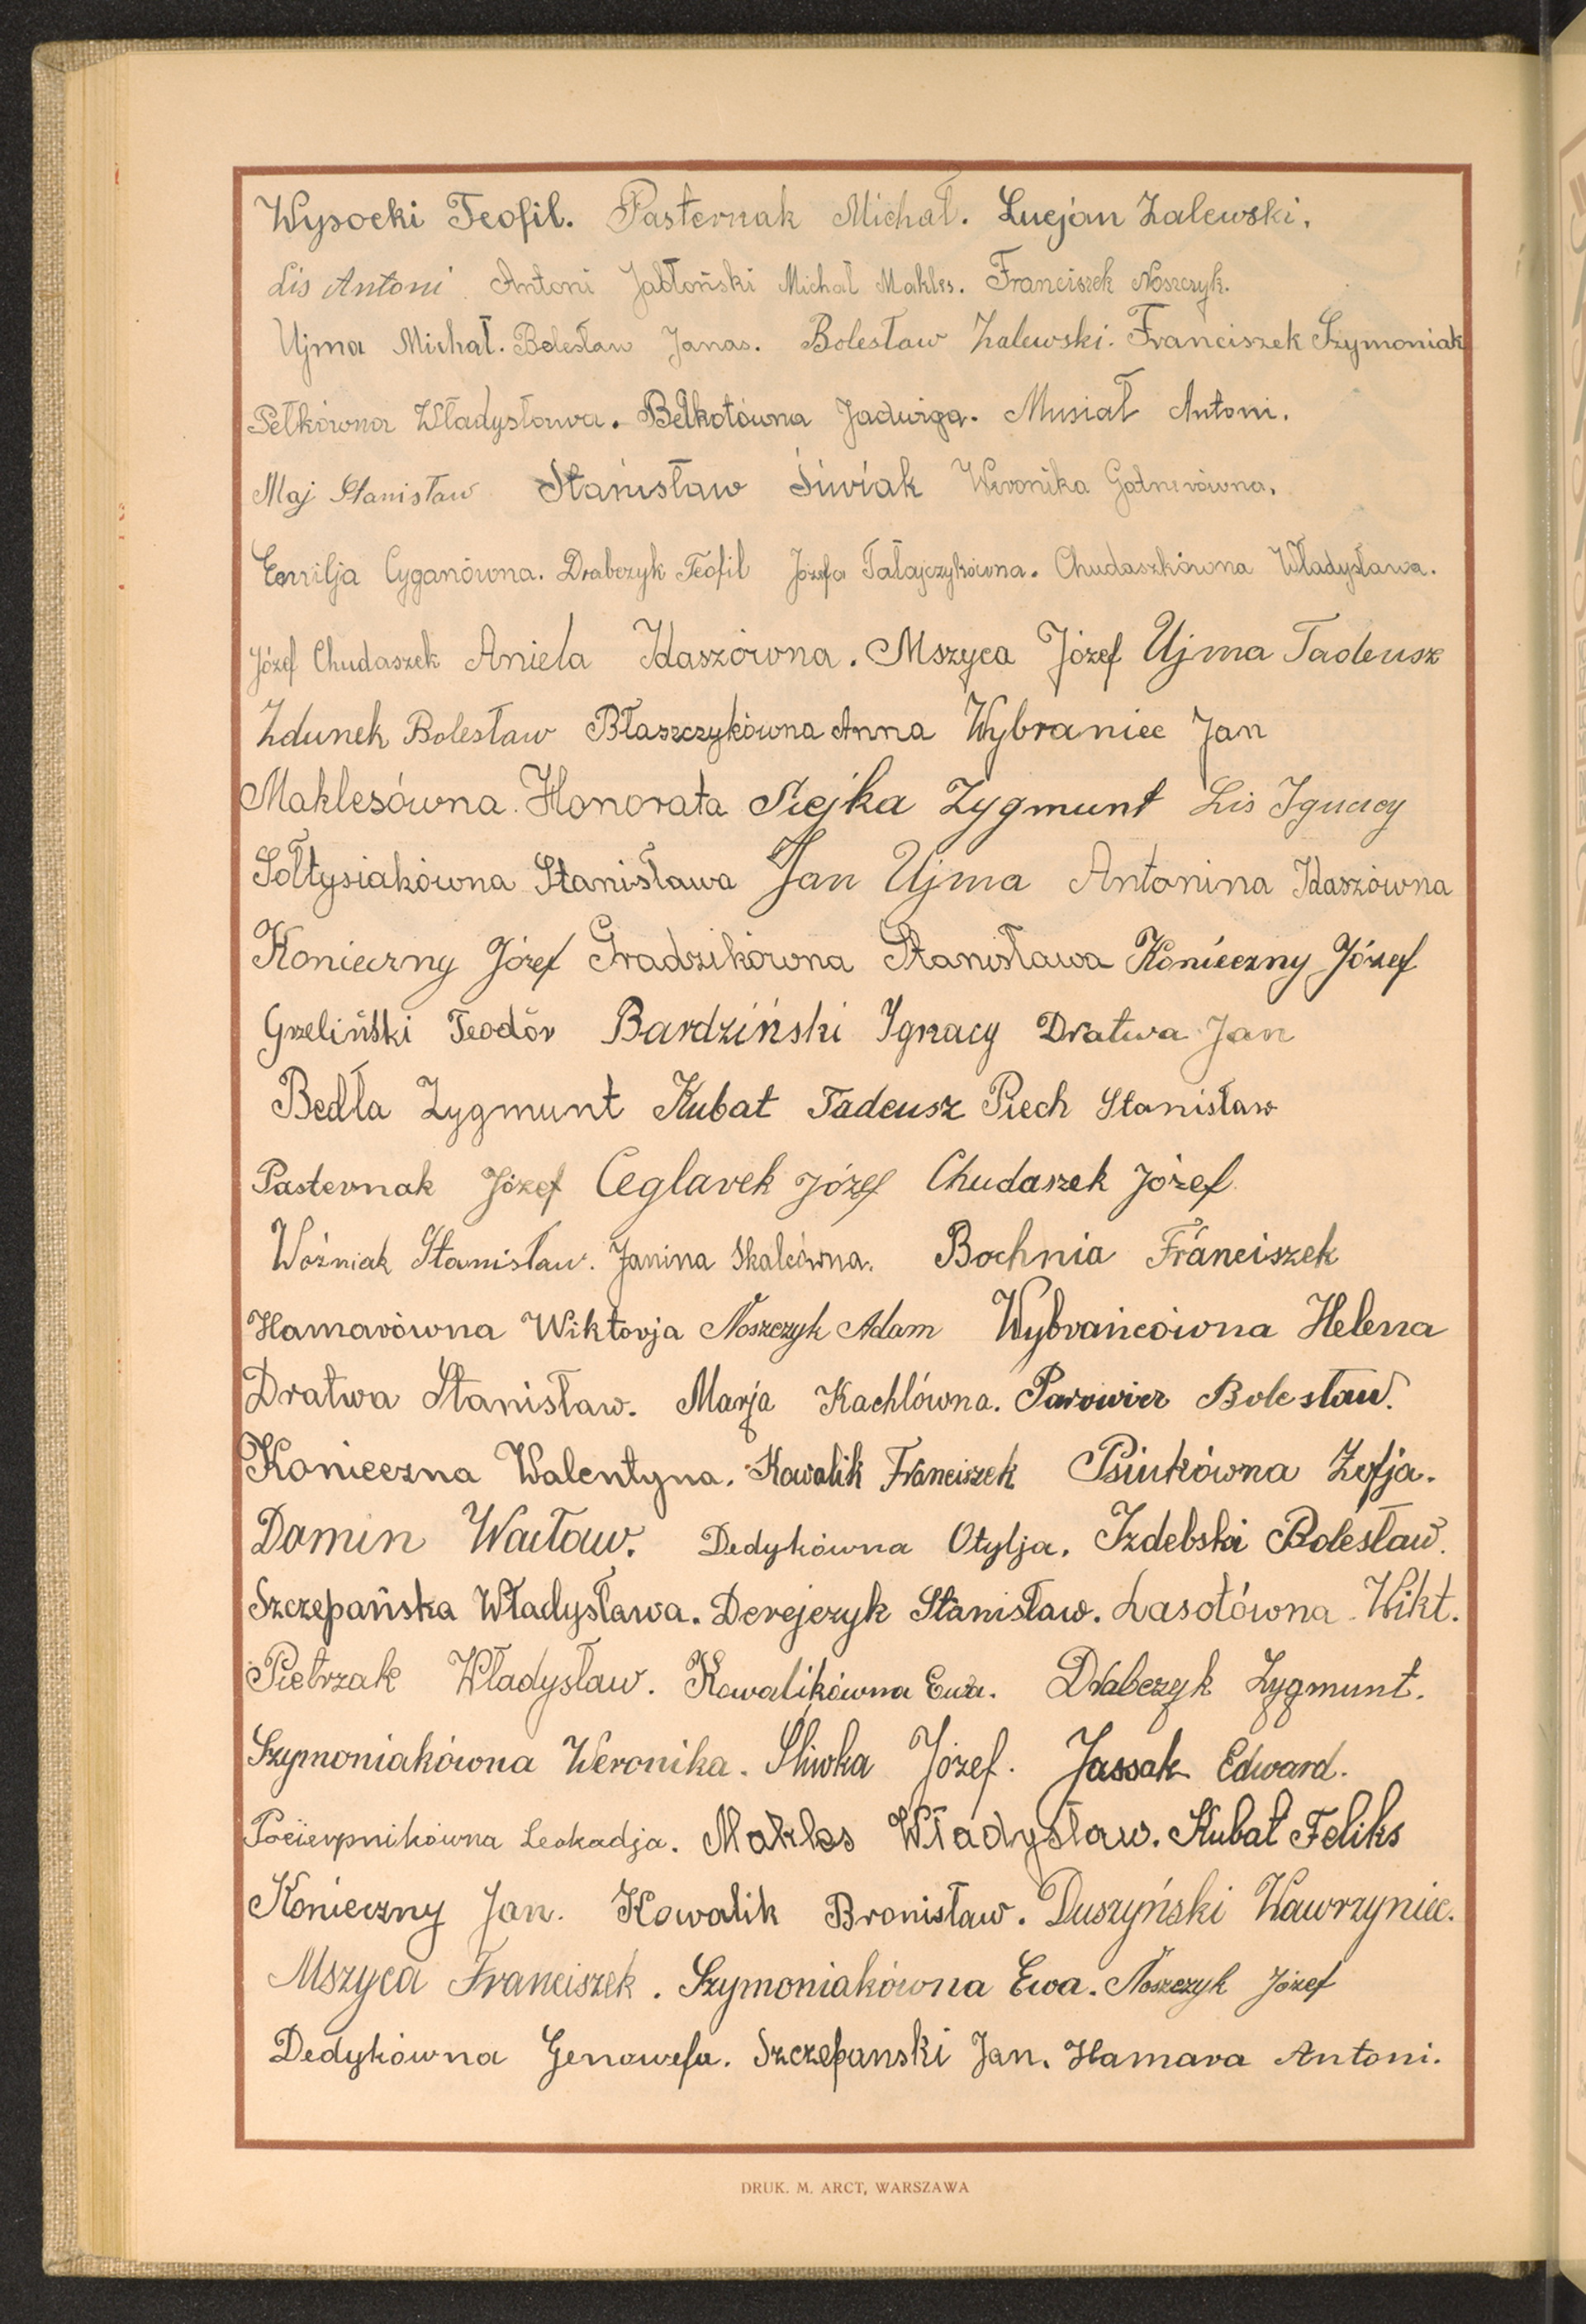 Wysocki Teofil. Pasternak Michał. Lucjan Zalewski.
Lis Antoni Antoni Jabłoński Michał Makles. Franciszek Noszczyk.
Ujma Michał. Bolesław Janas. Bolesław Zalewski. Franciszek Szymoniak
Pełkówna Władysława. Bełkotówna Jadwiga. Musiał Antoni.
Maj Stanisław Stanisław Siwiak Weronika Gatnerówna.
Emilja Cyganówna. Drabczyk Teofil Józefa Tałajczykówna. Chudaszkówna Władysława.
Józef Chudaszek Aniela Idaszówna. Mszyca Józef Ujma Tadeusz
Zdunek Bolesław Błaszczykówna Anna Wybraniec Jan
Maklesówna Honorata Siejka Zygmunt Lis Ignacy
Sołtysiakówna Stanisława Jan Ujma Antonina Idaszówna
Konieczny Józef Gradzikówna Stanisława Konieczny Józef
Grzeliński Teodór Bardziński Ignacy Dratwa Jan
Bedła Zygmunt Kubat Tadeusz Piech Stanisław
Pasternak Józef Ceglarek Józef Chudaszek Józef
Woźniak Stanisław. Janina Skalcówna. Bochnia Franciszek
Hamarówna Wiktorja Noszczyk Adam Wybrańcówna Helena
Dratwa Stanisław. Marja Kachlówna. Parowicz Bolesław.
Konieczna Walentyna. Kowalik Franciszek Psiukówna Zofja.
Domin Wacław. Dedykówna Otylja. Izdebski Bolesław.
Szczepańska Władysława. Derejczyk Stanisław. Lasotówna Wikt.
Pietrzak Władysław. Kowalikówna Ewa. Drabczyk Zygmunt.
Szymoniakówna Weronika. Śliwka Józef. Jassak Edward.
Pocierpnikówna Leokadja. Makles Władysław. Kubat Feliks
Konieczny Jan. Kowalik Bronisław. Duszyński Wawrzyniec.
Mszyca Franciszek. Szymoniakówna Ewa. Noszczyk Józef
Dedykówna Genowefa. Szczepanski Jan. Hamara Antoni.
DRUK. M. ARCT, WARSZAWA